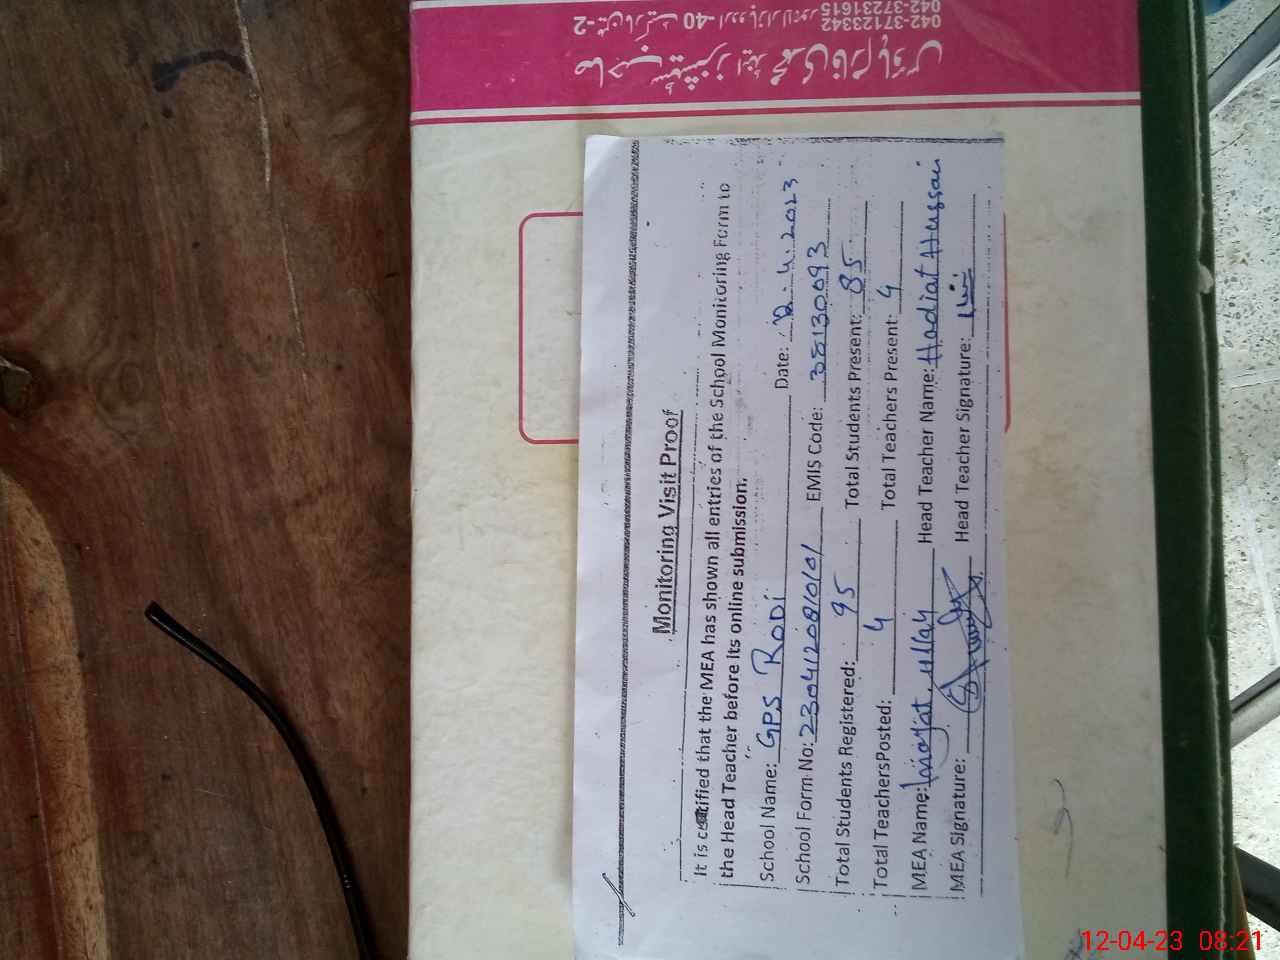 042-37231615
042-37123342
Monitoring Visit Proof
It is certified that the MEA has shown all entries of the School Monitoring Form to
the Head Teacher before its online submission.
School Name: GPS RODi Date: 12.4.2023
School Form No: 2304120810101 EMIS Code: 38130093
Total Students Registered: 95 Total Students Present: 85
Total TeachersPosted: 4 Total Teachers Present: 4
MEA Name: Inayat ullah Head Teacher Name: Hadiat Hussai
MEA Signature: Head Teacher Signature:
12-04-23 08:21